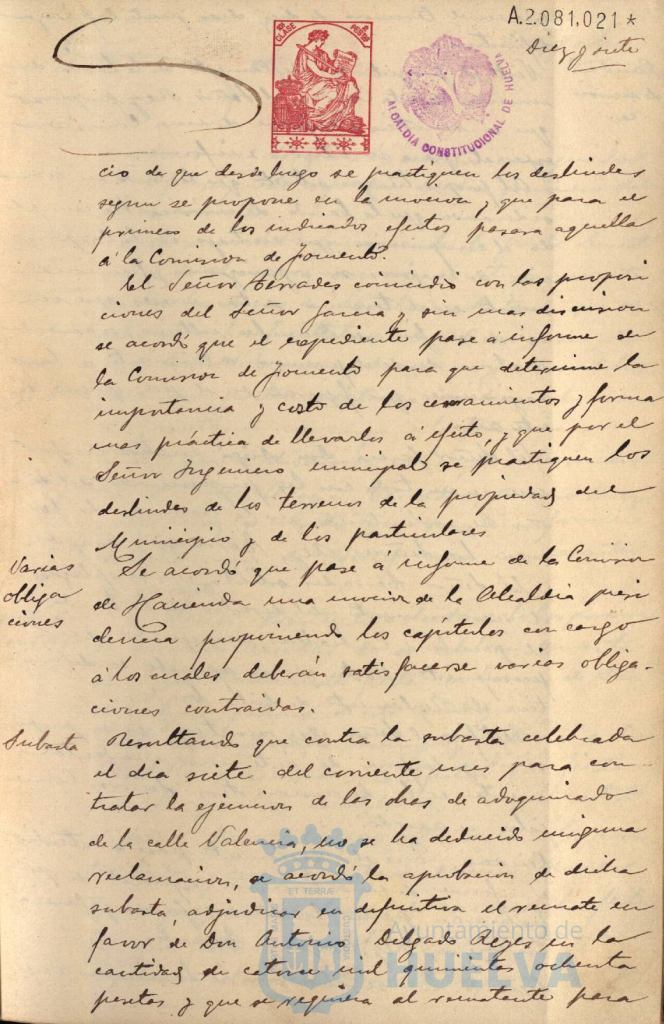 A.2.081,021 *
Diez y siete
10ª CLASE 2 PESETAS
ALCALDIA CONSTITUCIONAL DE HUELVA
cio de que desde luego se practiquen los deslindes
segun se propone en la mocion y que para el
primero de los indicados efectos pasara aquella
á la Comision de Fomento.
El Señor Terrades coincidió con las proposi
ciones del Señor Garcia y sin mas discusion
se acordó que el expediente pase á informe de
la Comision de Fomento para que determine la
importancia y costo de los cerramientos y forma
mas práctica de llevarlos á efecto, y que por el
Señor Ingeniero municipal se practiquen los
deslindes de los terrenos de la propiedad del
Municipio y de los particulares
Varias
obliga
ciones
Se acordó que pase á informe de la Comision
de Hacienda una mocion de la Alcaldia presi
dencia proponiendo los capítulos con cargo
á los cuales deberán satisfacerse varias obliga-
ciones contraidas.
Subasta
Resultando que contra la subasta celebrada
el dia siete del corriente mes para con-
tratar la ejecucion de las obras de adoquinado
de la calle Valencia, no se ha deducido ninguna
reclamacion, se acordó la aprobacion de dicha
subasta, adjudicar en definitiva el remate en
favor de Don Antonio Delgado Reyes en la
cantidad de catorce mil quinientas ochenta
pesetas y que se requiera al rematante para
ET TERRÆ
Ayuntamiento de
HUELVA